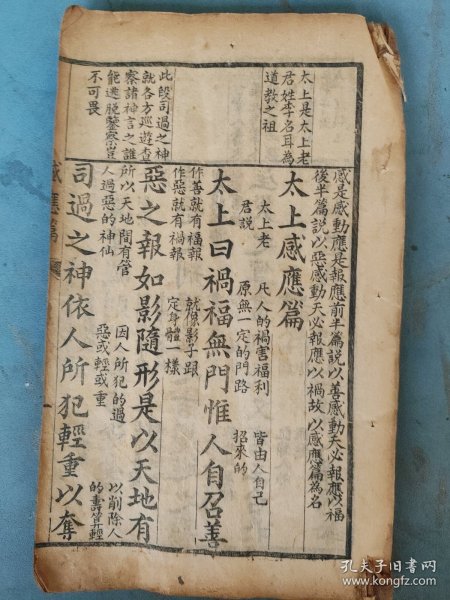 太上是太上老
君姓李名耳為
道教之祖
此段司過之神
就各方巡遊查
察諸神言之誰
能逃脫鑒察豈
不可畏
感是感動應是報應前半篇說以善感動天必報應以福
後半篇說以惡感動天必報應以禍故以感應篇為名
太上感應篇
太上老
君說
凡人的禍害福利
原無一定的門路
皆由人自己
招來的
太上曰禍福無門惟人自召善
作善就有福報
作惡就有禍報
就像影子跟
定身體一樣
惡之報如影隨形是以天地有
所以天地間有管
人過惡的神仙
因人所犯的過
惡或輕或重
以削除人
的壽算輕
司過之神依人所犯輕重以奪
感應篇
孔夫子旧书网
www.kongfz.com